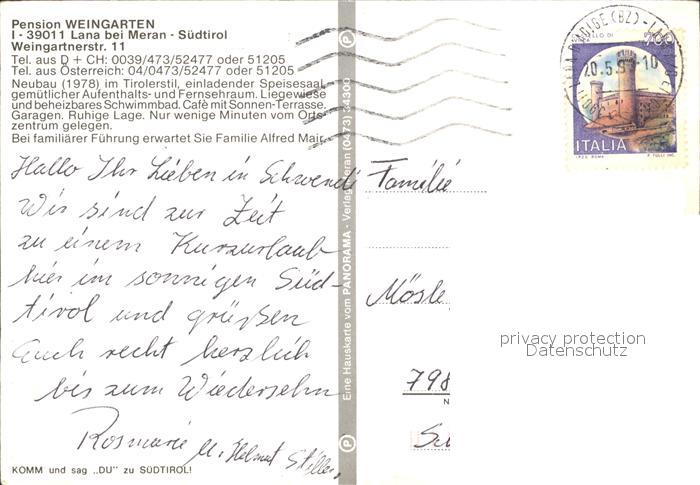 Pension WEINGARTEN
I - 39011 Lana bei Meran - Südtirol
Weingartnerstr. 11
Tel. aus D + CH: 0039/473/52477 oder 51205
Tel. aus Österreich: 04/0473/52477 oder 51205
Neubau (1978) im Tirolerstil, einladender Speisesaal,
gemütlicher Aufenthalts- und Fernsehraum. Liegewiese
und beheizbares Schwimmbad. Cafè mit Sonnen-Terrasse.
Garagen. Ruhige Lage. Nur wenige Minuten vom Orts-
zentrum gelegen.
Bei familiärer Führung erwartet Sie Familie Alfred Mair.
Hallo Ihr Lieben in Schwendi
Wir sind zur Zeit
zu einem Kurzurlaub
hier im sonnigen Süd-
tirol und grüßen
Euch recht herzlich
bis zum Wiedersehn
Rosmarie u. Helmut Stiller,
KOMM und sag „DU" zu SÜDTIROL!
Eine Hauskarte vom PANORAMA - Verlag Meran (0473)
P
P
Familie
Mösle
798
N
700
ITALIA
I.P.Z.S. ROMA
F. TULLI INC.
privacy protection
Datenschutz